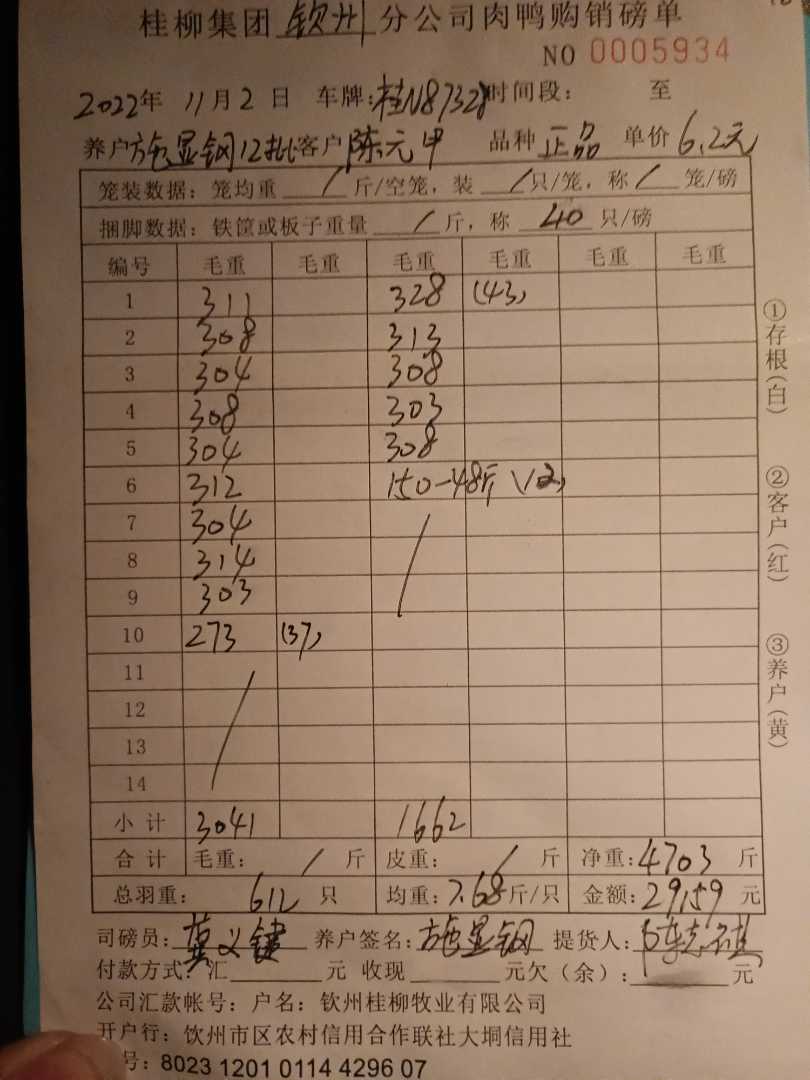 桂柳集团 钦州 分公司肉鸭购销磅单
NO 0005934
2022年 11月2日 车牌:桂N87328 时间段: 至
养户 施显钢12批 客户 陈元甲 品种 正品 单价 6.2元
笼装数据:笼均重 / 斤/空笼,装 / 只/笼,称 / 笼/磅
捆脚数据:铁筐或板子重量 / 斤,称 40 只/磅
编号 毛重 毛重 毛重 毛重 毛重 毛重
1 311 328 (43)
2 308 313
3 304 308
4 308 303
5 304 308
6 312 150-48斤 (12)
7 304 /
8 314
9 303
10 273 (37)
11 /
12
13
14
小计 3041 1662
合计 毛重: / 斤 皮重: / 斤 净重:4703 斤
总羽重: 612 只 均重:7.68斤/只 金额:29159 元
司磅员: 莫义键 养户签名: 施显钢 提货人:
付款方式:汇 元 收现 元欠(余): 元
公司汇款帐号:户名:钦州桂柳牧业有限公司
开户行:钦州市区农村信用合作联社大垌信用社
号:8023 1201 0114 4296 07
①存根(白)
②客户(红)
③养户(黄)